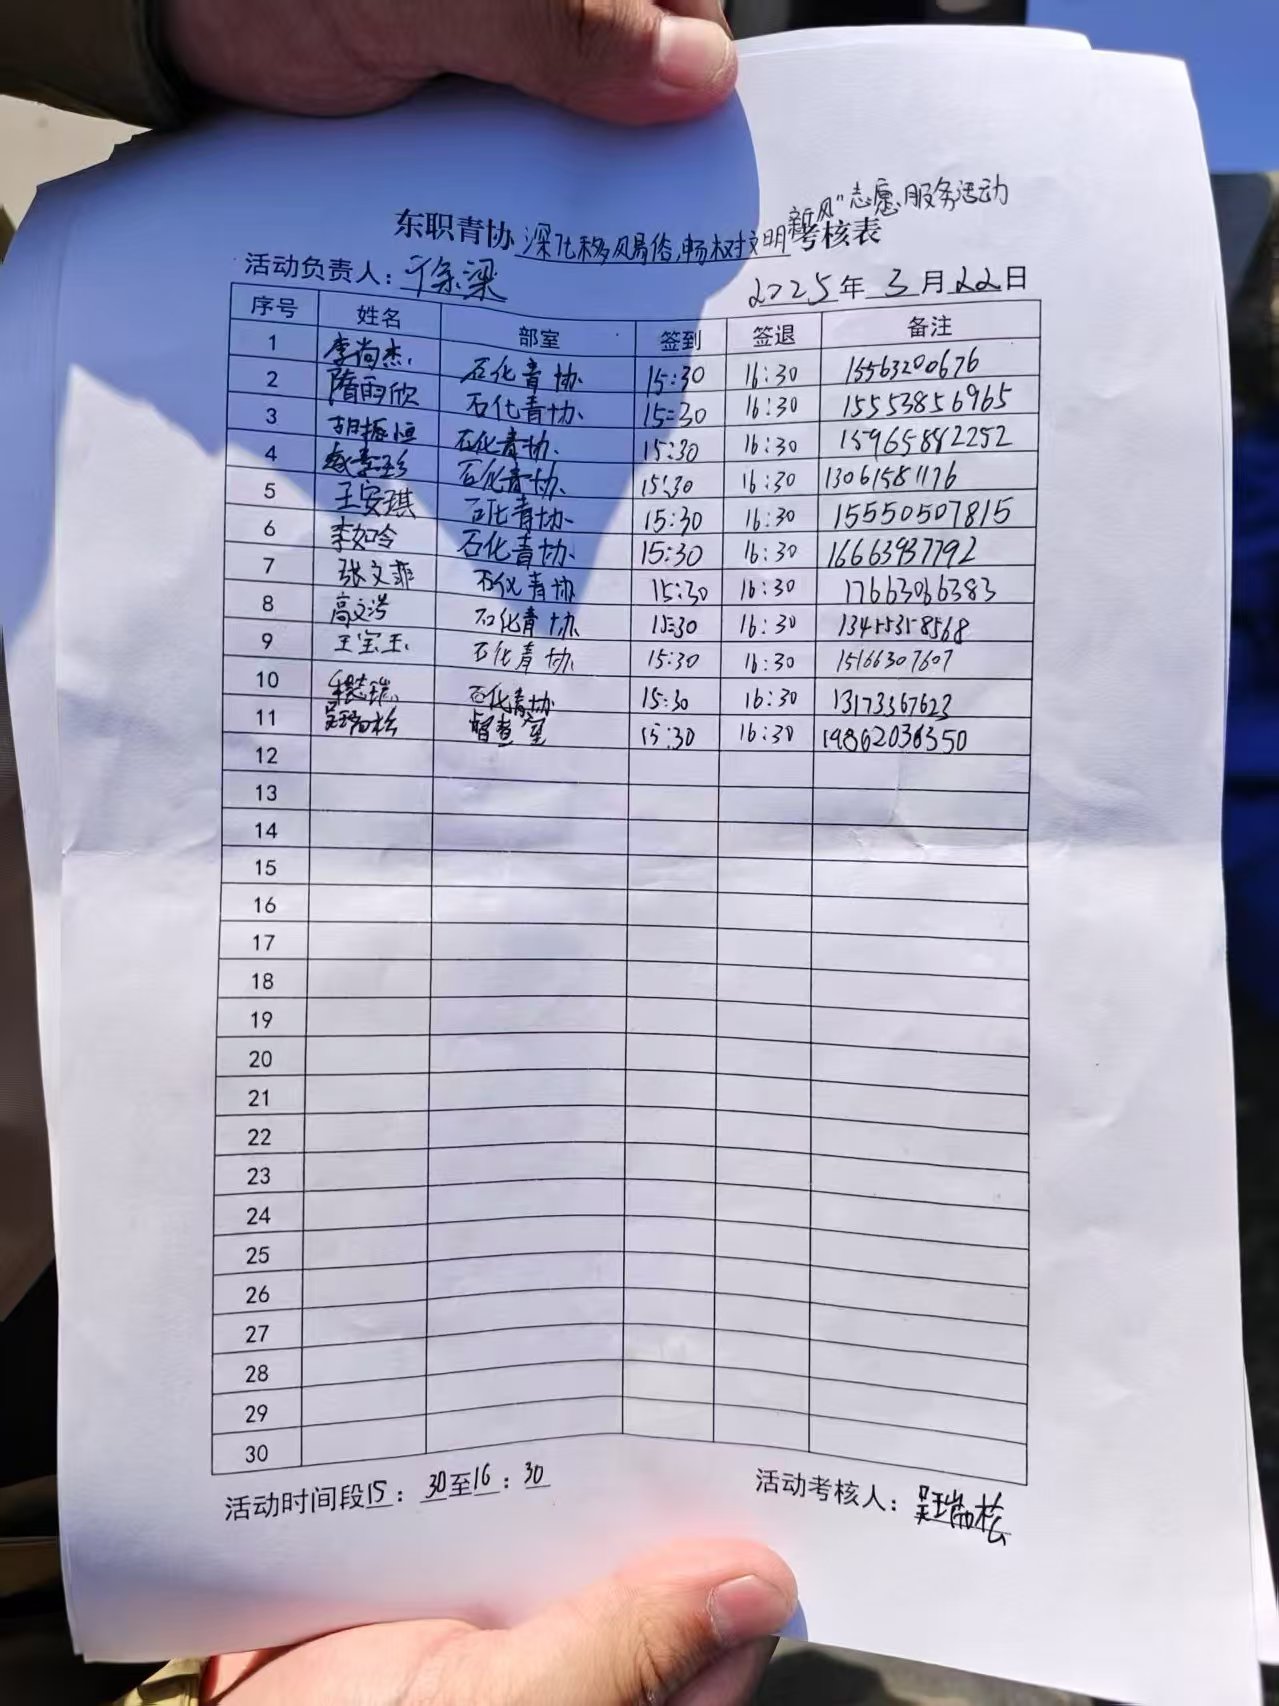 新风"志愿服务活动
东职青协 深化移风易俗,畅树文明 考核表
活动负责人: 于余梁
2025年 3月 22日
序号 姓名 部室 签到 签退 备注
1 李尚杰 石化青协 15:30 16:30 15563200676
2 隋雨欣 石化青协 15:30 16:30 15553856965
3 胡振恒 石化青协 15:30 16:30 15965882252
4 石化青协 15:30 16:30 13061581176
5 王安琪 石化青协 15:30 16:30 15550507815
6 李如令 石化青协 15:30 16:30 16663937792
7 张文菲 石化青协 15:30 16:30 17663066383
8 高文浩 石化青协 15:30 16:30 13455358568
9 王宝玉 石化青协 15:30 16:30 15166307607
10 石化青协 15:30 16:30 13173367623
11 吴瑞松 督查室 15:30 16:30 19862036350
12
13
14
15
16
17
18
19
20
21
22
23
24
25
26
27
28
29
30
活动时间段15:30至16:30
活动考核人: 吴瑞松